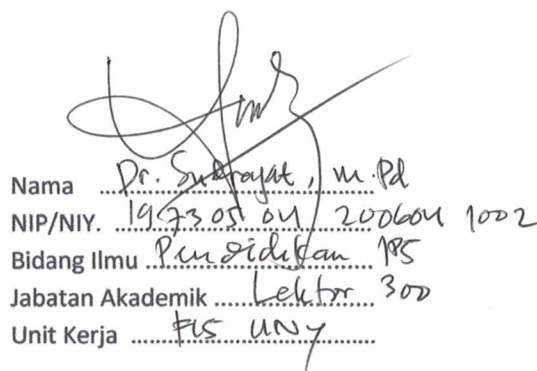 Nama Dr. Sudrajat, M.Pd
NIP/NIY. 19730504 200604 1002
Bidang Ilmu Pendidikan IPS
Jabatan Akademik Lektor 300
Unit Kerja FIS UNY